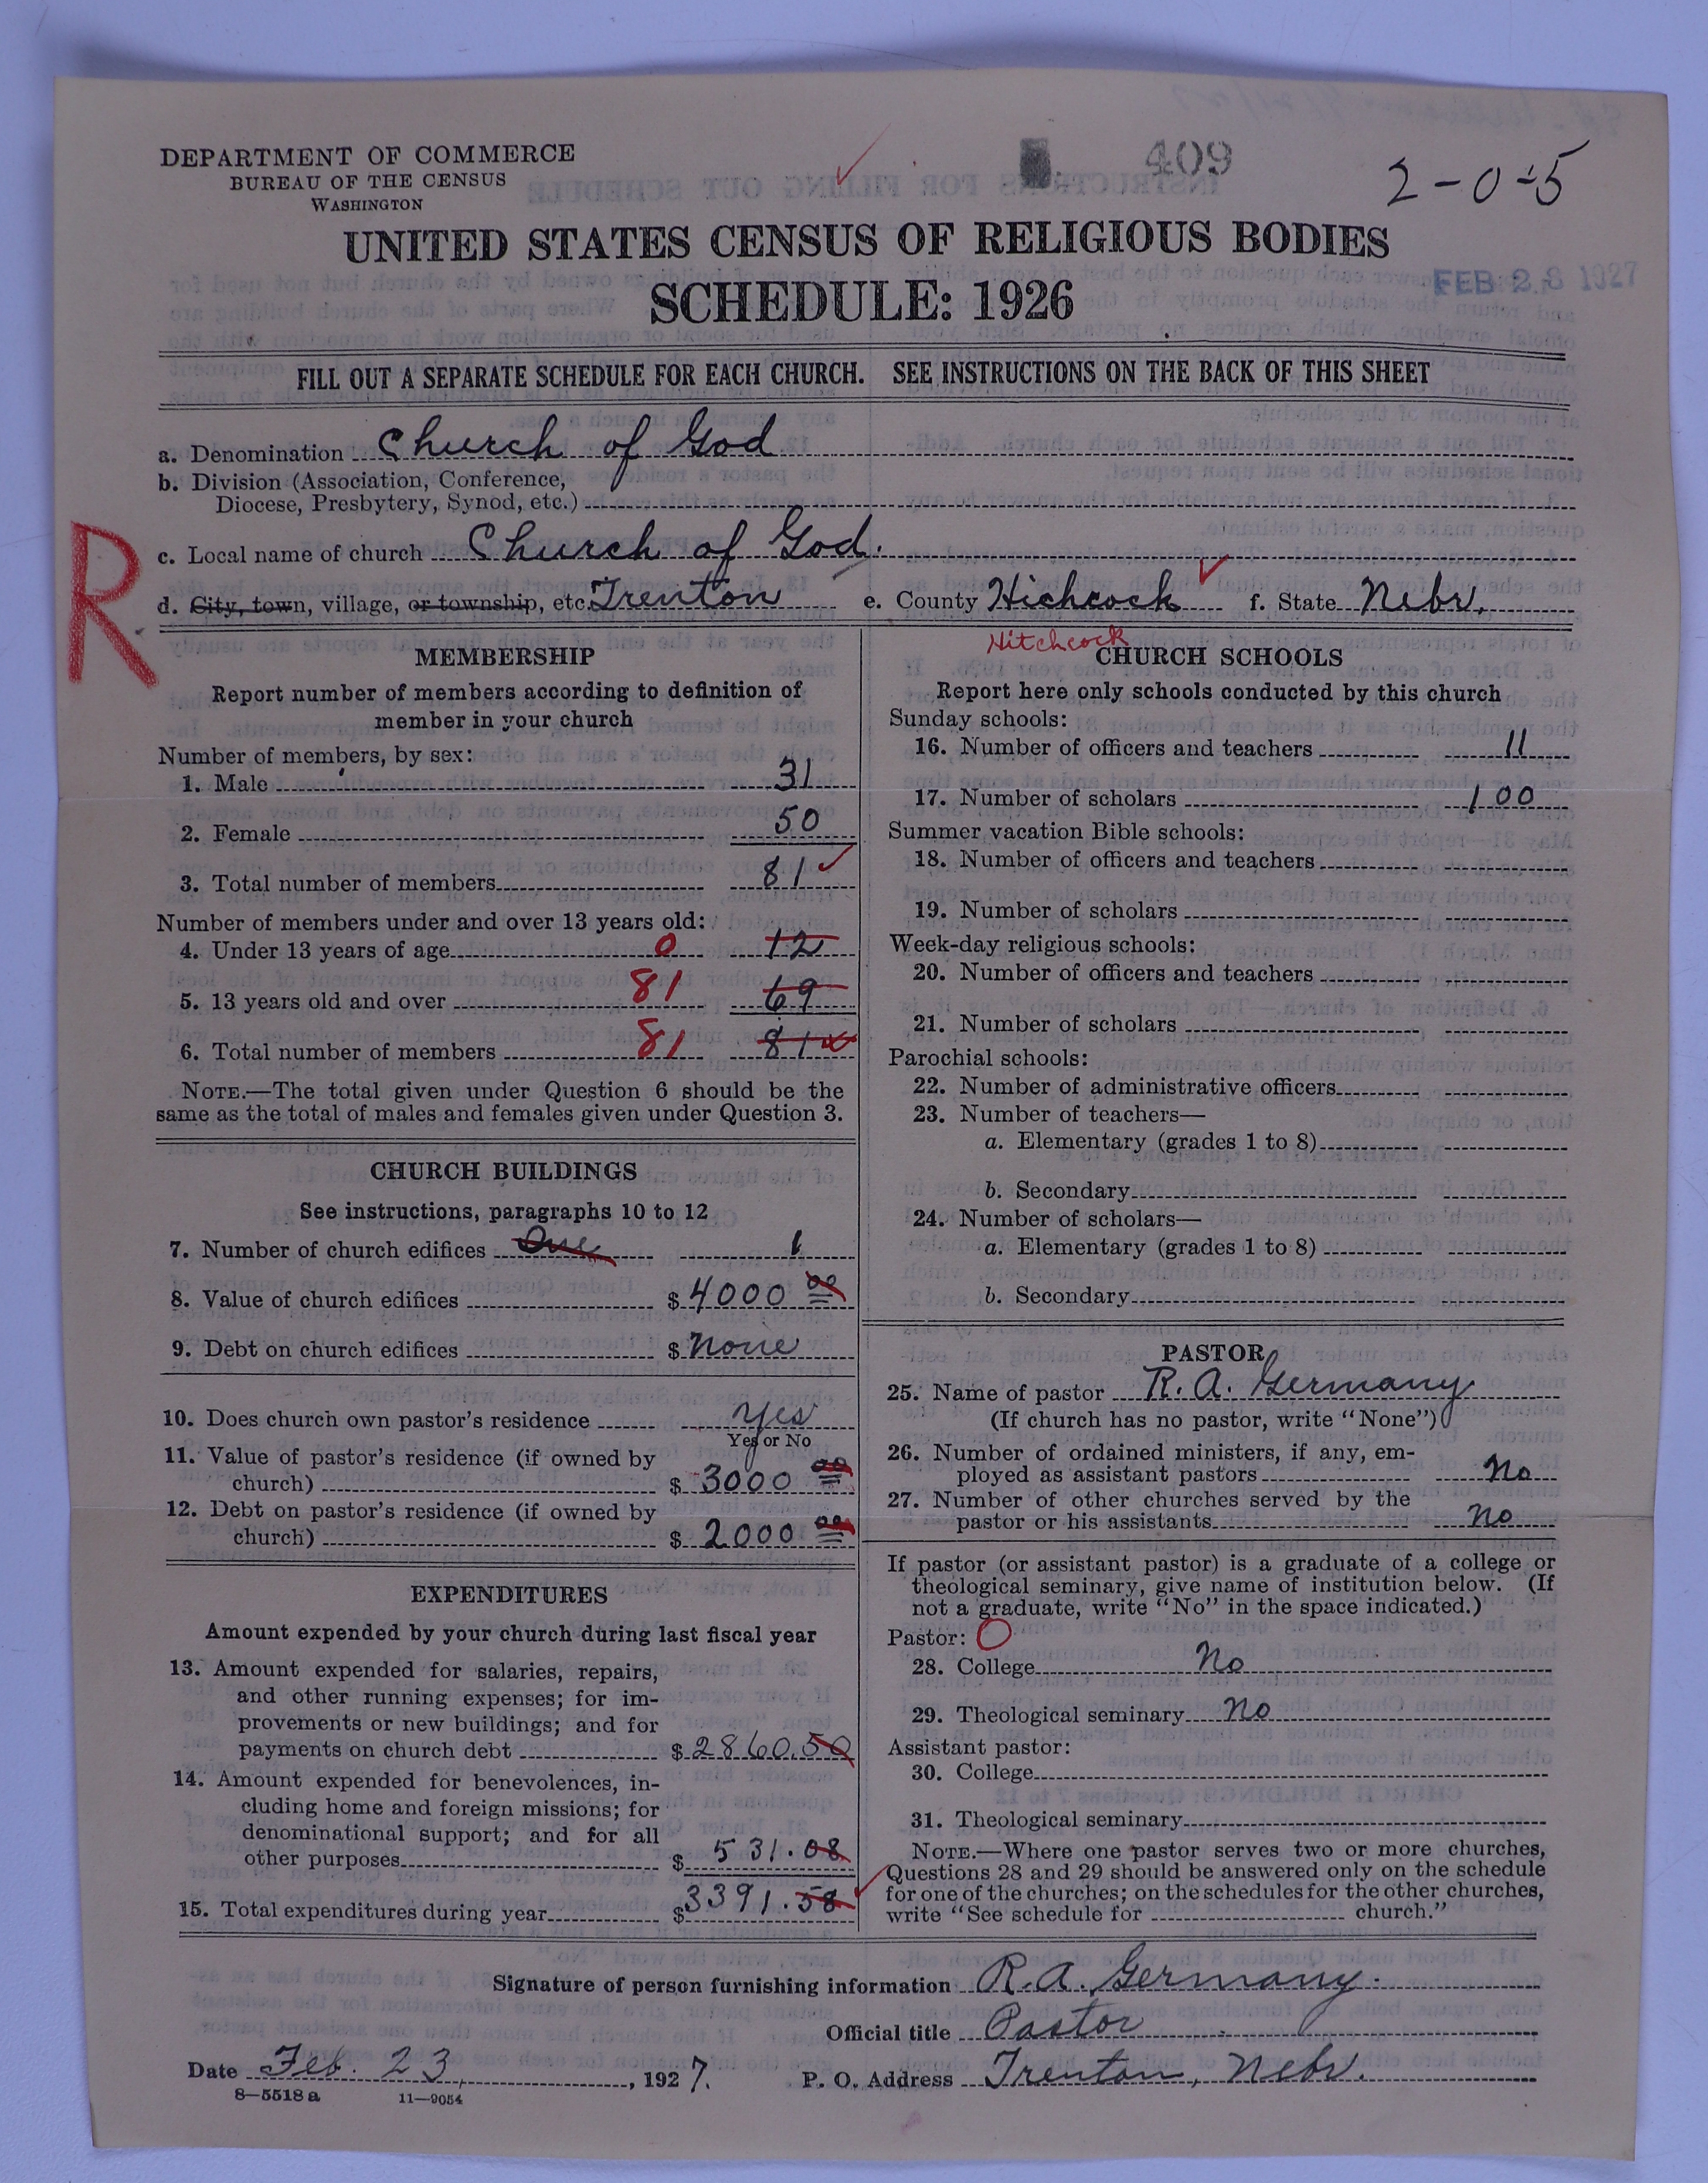 DEPARTMENT OF COMMERCE
BUREAU OF THE CENSUS
WASHINGTON
409
2-0-5
UNITED STATES CENSUS OF RELIGIOUS BODIES
SCHEDULE: 1926
FEB 28 1927
FILL OUT A SEPARATE SCHEDULE FOR EACH CHURCH. SEE INSTRUCTIONS ON THE BACK OF THIS SHEET
a. Denomination Church of God
b. Division (Association, Conference,
Diocese, Presbytery, Synod, etc.)
R
c. Local name of church Church of God.
d. City, town, village, or township, etc. Trenton e. County Hichcock f. State Nebr.
Hitchcock
MEMBERSHIP
Report number of members according to definition of
member in your church
Number of members, by sex:
1. Male 31
2. Female 50
3. Total number of members 81
Number of members under and over 13 years old:
4. Under 13 years of age 0 12
5. 13 years old and over 81 69
6. Total number of members 81 81
NOTE.—The total given under Question 6 should be the
same as the total of males and females given under Question 3.
CHURCH BUILDINGS
See instructions, paragraphs 10 to 12
7. Number of church edifices One 1
8. Value of church edifices $ 4000 00
9. Debt on church edifices $ None
10. Does church own pastor's residence Yes
Yes or No
11. Value of pastor's residence (if owned by
church) $ 3000 00
12. Debt on pastor's residence (if owned by
church) $ 2000 00
EXPENDITURES
Amount expended by your church during last fiscal year
13. Amount expended for salaries, repairs,
and other running expenses; for im-
provements or new buildings; and for
payments on church debt $ 2860.50
14. Amount expended for benevolences, in-
cluding home and foreign missions; for
denominational support; and for all
other purposes $ 531.08
15. Total expenditures during year $ 3391.58
CHURCH SCHOOLS
Report here only schools conducted by this church
Sunday schools:
16. Number of officers and teachers 11
17. Number of scholars 100
Summer vacation Bible schools:
18. Number of officers and teachers
19. Number of scholars
Week-day religious schools:
20. Number of officers and teachers
21. Number of scholars
Parochial schools:
22. Number of administrative officers
23. Number of teachers—
a. Elementary (grades 1 to 8)
b. Secondary
24. Number of scholars—
a. Elementary (grades 1 to 8)
b. Secondary
PASTOR
25. Name of pastor R. A. Germany
(If church has no pastor, write "None")
26. Number of ordained ministers, if any, em-
ployed as assistant pastors No
27. Number of other churches served by the
pastor or his assistants No
If pastor (or assistant pastor) is a graduate of a college or
theological seminary, give name of institution below. (If
not a graduate, write "No" in the space indicated.)
Pastor: O
28. College No
29. Theological seminary No
Assistant pastor:
30. College
31. Theological seminary
NOTE.—Where one pastor serves two or more churches,
Questions 28 and 29 should be answered only on the schedule
for one of the churches; on the schedules for the other churches,
write "See schedule for church."
Signature of person furnishing information R. A. Germany.
Official title Pastor
Date Feb. 23, 1927. P. O. Address Trenton, Nebr.
8—5518 a 11—9054